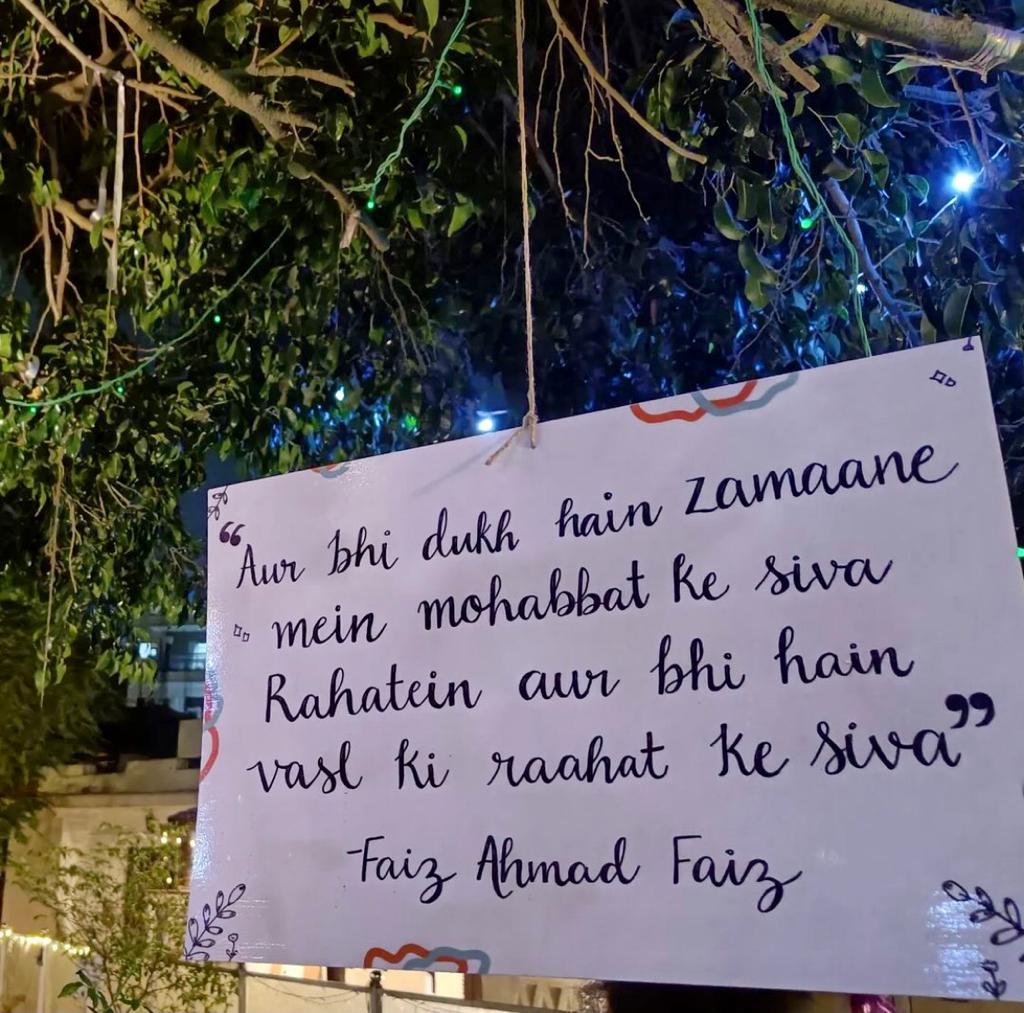 “Aur bhi dukh hain zamaane
mein mohabbat ke siva
Rahatein aur bhi hain
vasl ki raahat ke siva”
-Faiz Ahmad Faiz